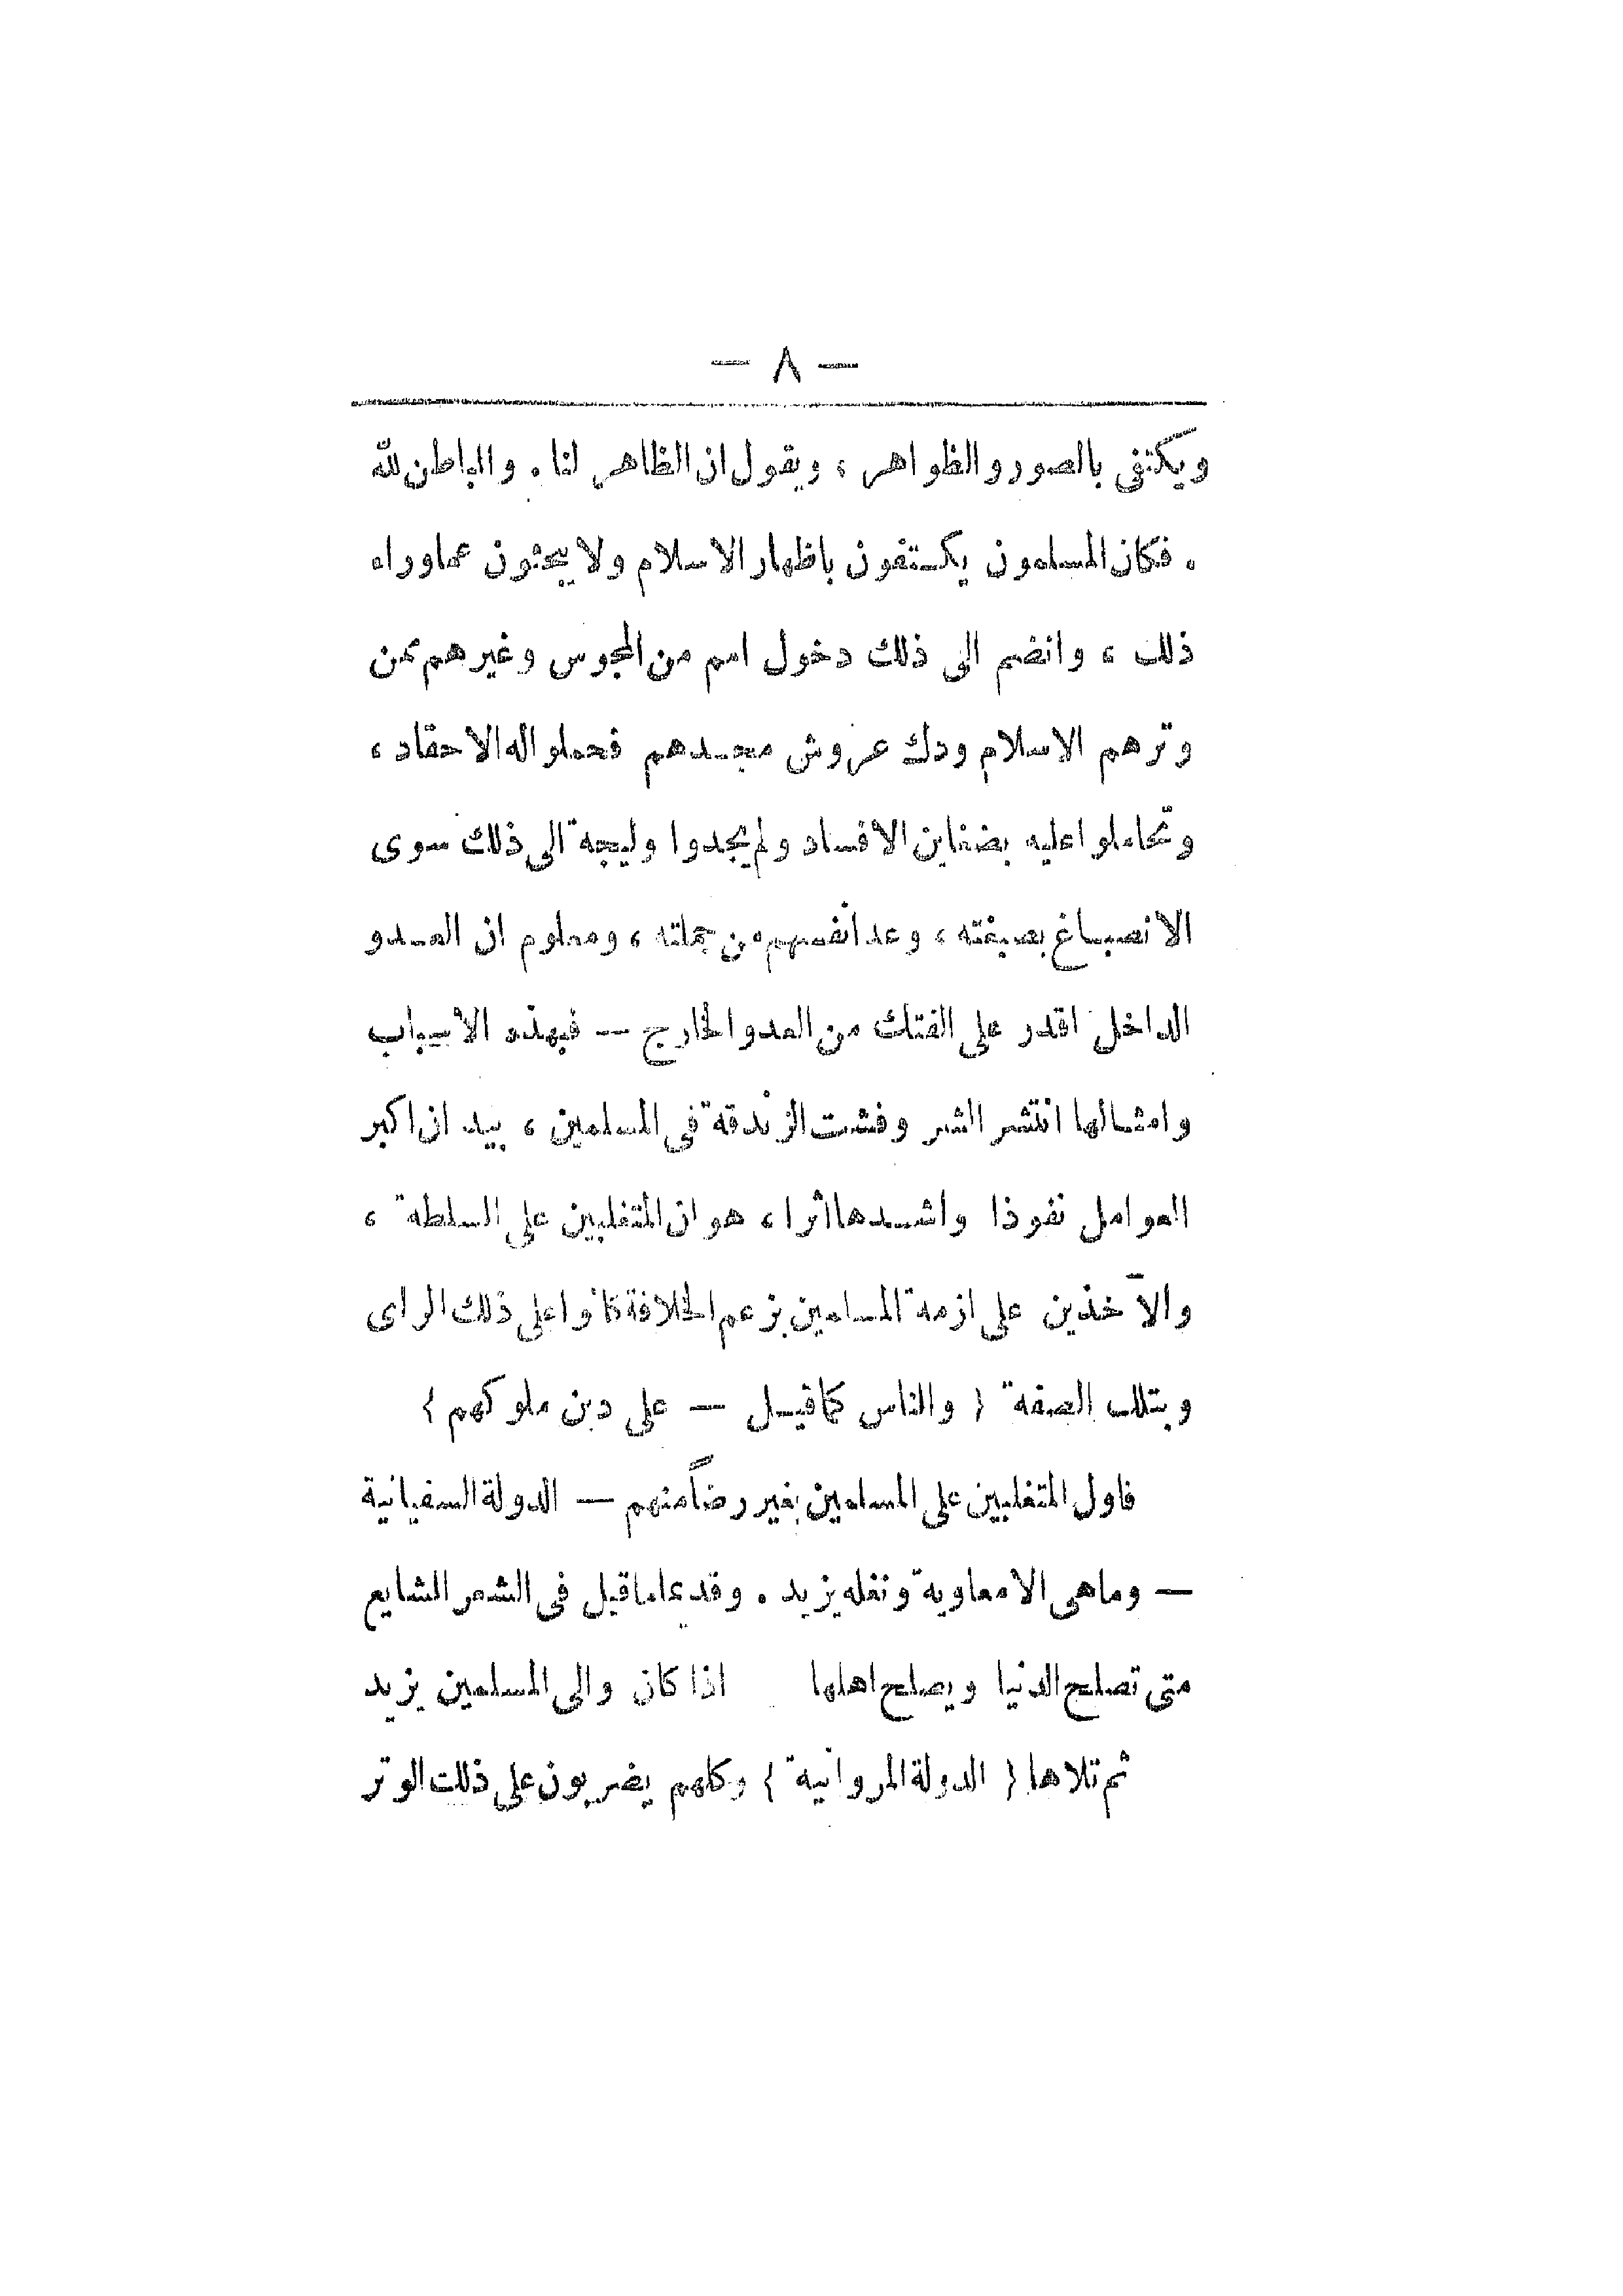 — ٨ —
ويكتفي بالصور والظواهر ، ويقول ان الظاهر لنا . والباطن لله
. فكان المسلمون يكتفون باظهار الاسلام ولا يبحثون عما وراء
ذلك ، وانضم الى ذلك دخول امم من المجوس وغيرهم ممن
وترهم الاسلام ودك عروش مجدهم فحملوا له الاحقاد ،
وتحاملوا عليه بضغاين الافساد ولم يجدوا وليجة الى ذلك سوى
الانصباغ بصبغته ، وعد انفسهم من جملته ، ومعلوم ان العدو
الداخل اقدر على الفتك من العدو الخارج — فبهذه الاسباب
وامثالها انتشر الشر وفشت الزندقة في المسلمين ، بيد ان اكبر
العوامل نفوذا واشدها اثرا ، هو ان المتغلبين على السلطة ،
والآخذين على ازمة المسلمين بزعم الخلافة كانوا على ذلك الراى
وبتلك الصفة ( والناس كما قيل — على دين ملوكهم )
فاول المتغلبين على المسلمين بغير رضاً منهم — الدولة السفيانية
— وما هي الا معاوية ونغله يزيد . وقديما ما قيل في الشعر الشايع
متى تصلح الدنيا ويصلح اهلها اذا كان والى المسلمين يزيد
ثم تلاها ( الدولة المروانية ) وكلهم يضربون على ذلك الوتر